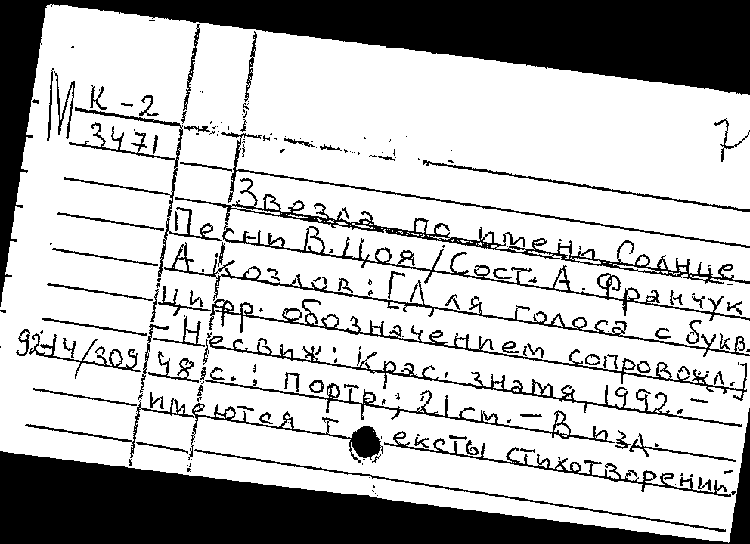 М К-2
3471
Звезда по имени Солнце
Песни В.Цоя/Сост. А. Франчук
А.Козлов: [Для голоса с букв.
цифр. обозначением сопровожд.]
- Несвиж: Крас. знамя, 1992.-
92-14/309 48 с.: портр.; 21 см. - В изд.
имеются тексты стихотворений.